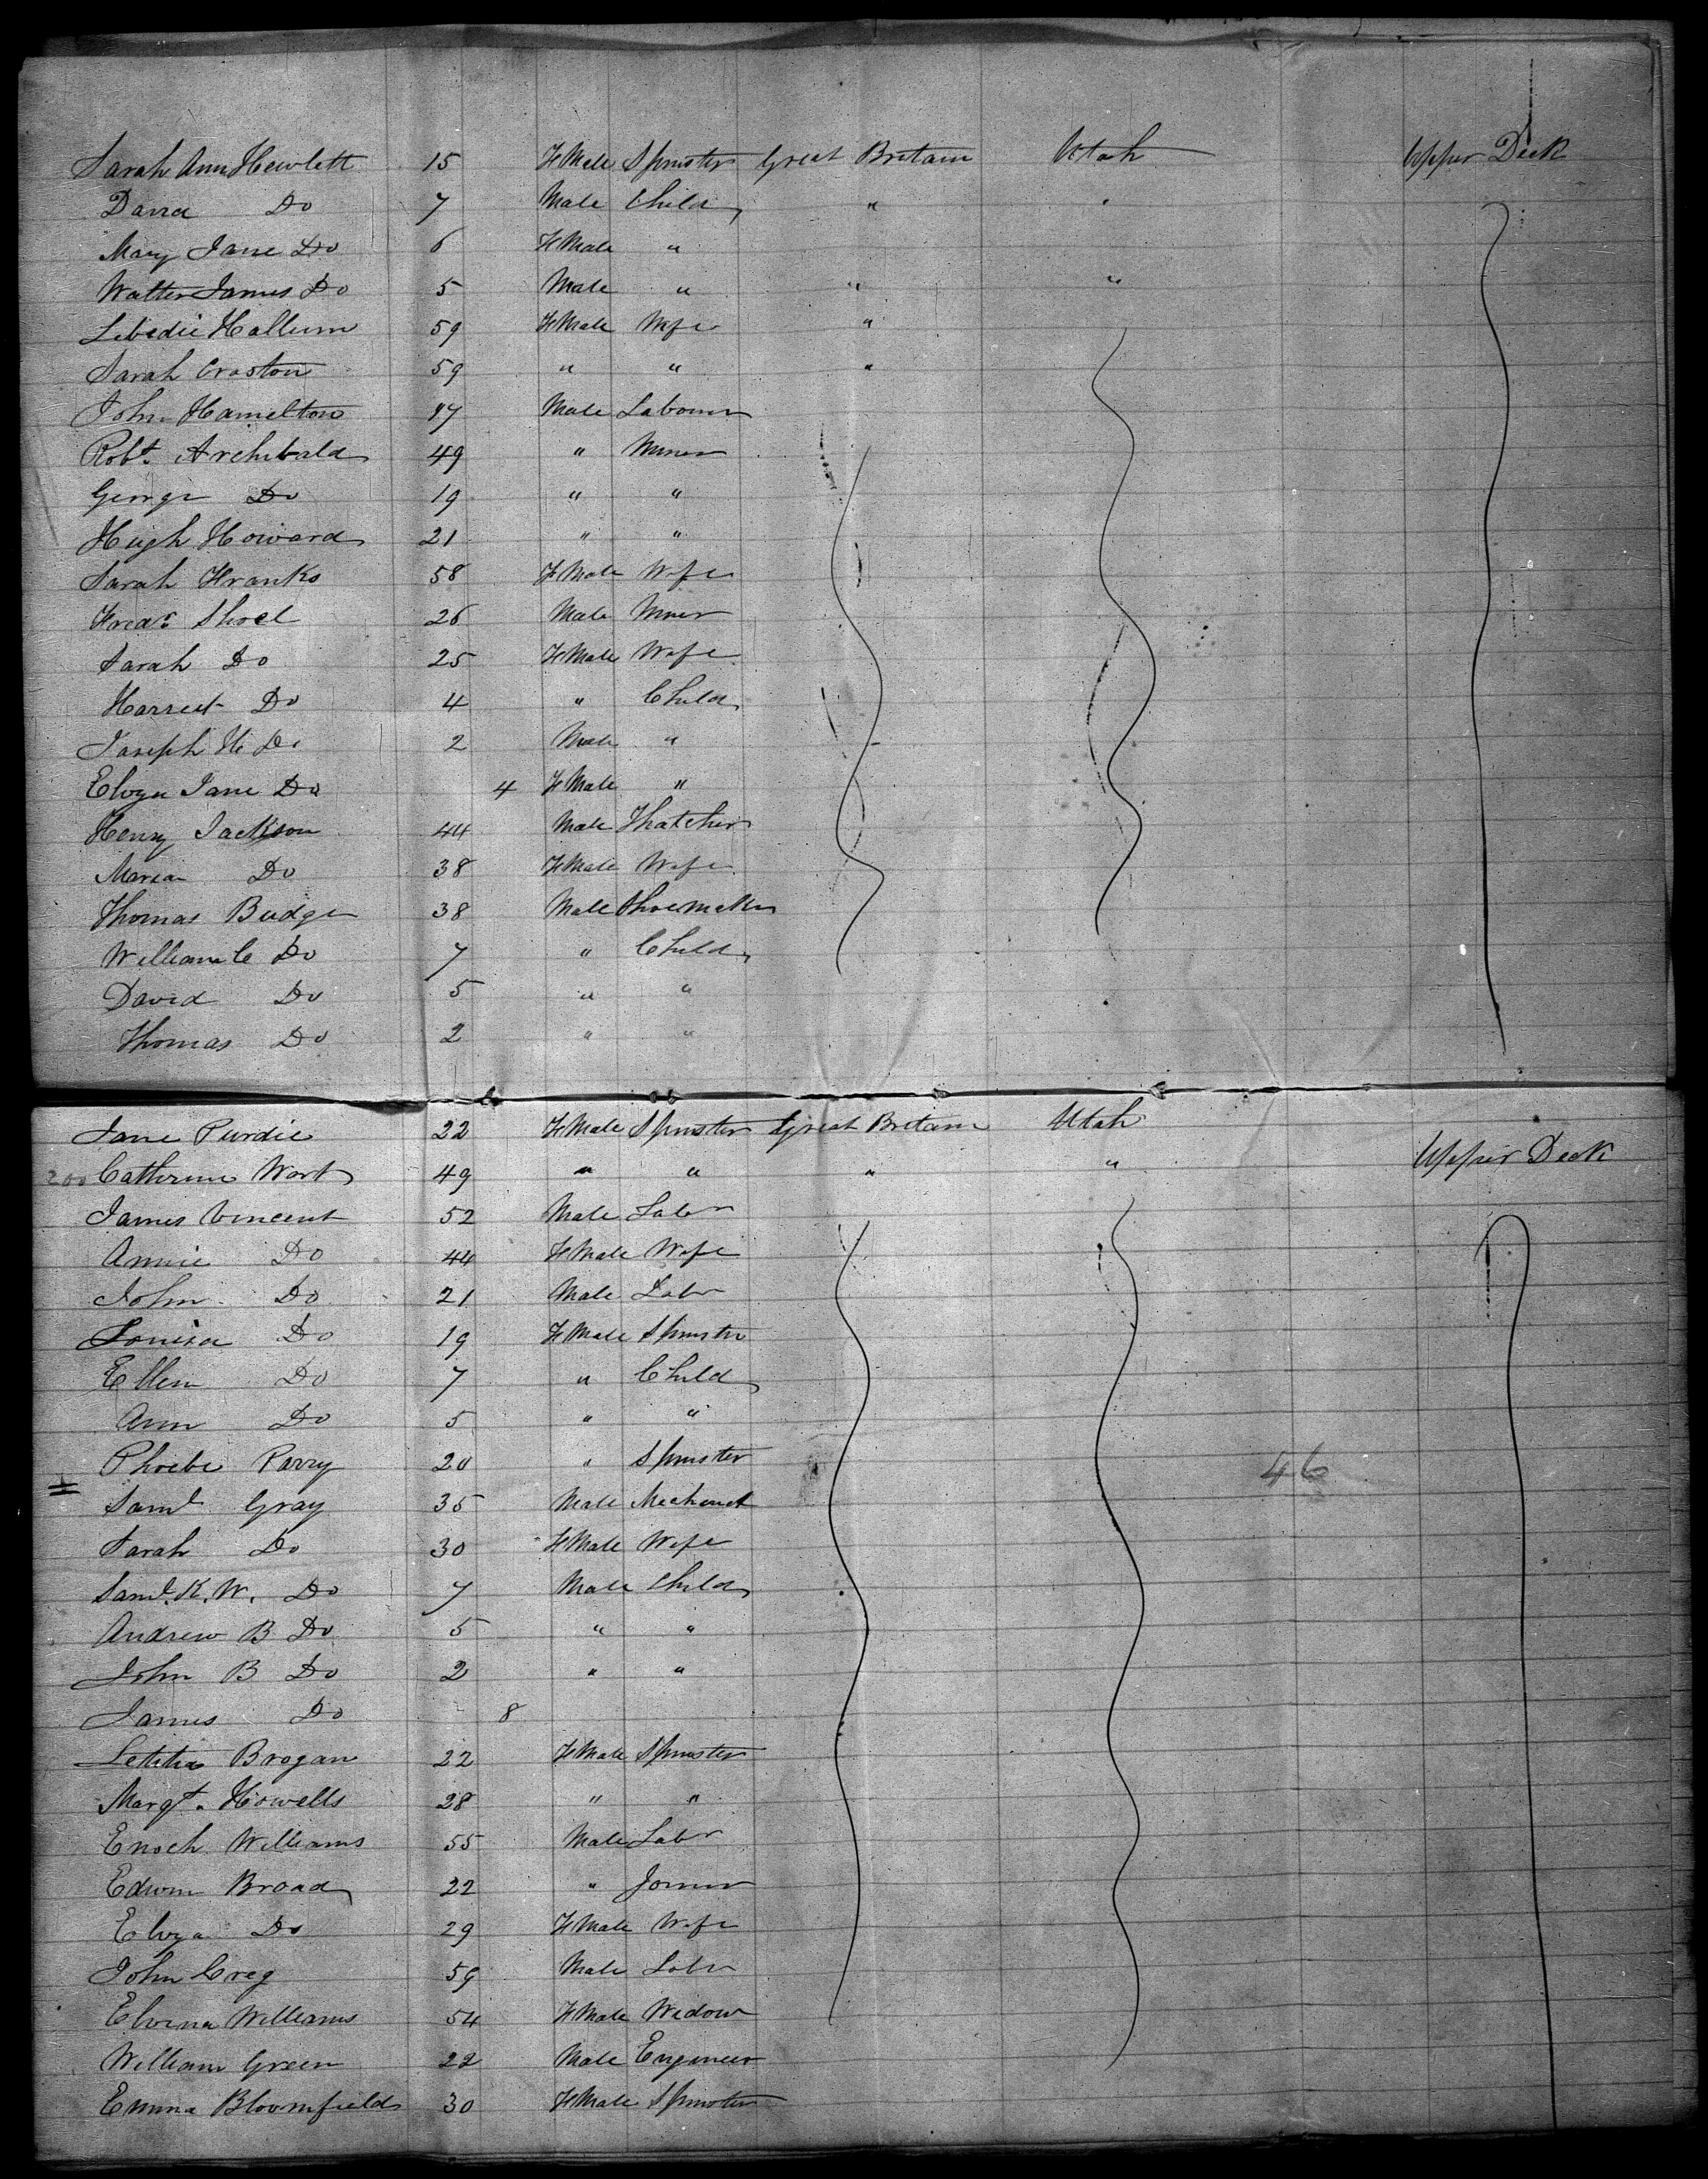 Sarah Ann Hewlett 15 FMale Spinster Great Britain Utah Upper Deck
David Do 7 Male Child " "
Mary Jane Do 6 FMale "
Walter James Do 5 Male " " "
Hallum 59 FMale Wife "
Sarah Croston 59 " " "
John Hamelton 47 Male Labourer
Robt. Archibald 49 " Miner
George Do 19 " "
Hugh Howard 21 " "
Sarah Franks 58 FMale Wife
Fredc Shoel 26 Male Miner
Sarah Do 25 FMale Wife
Harriet Do 4 " Child
Joseph H Do 2 Male "
Elvza Jane Do 4 FMale "
Henry Jackson 44 Male Thatcher
Maria Do 38 FMale Wife
Thomas Budge 38 Male Shoemaker
William C Do 7 " Child
David Do 5 " "
Thomas Do 2 " "
Jane Purdie 22 FMale Spinster Great Britain Utah
200 Catherine Wort 49 " " " " Upper Deck
James Vincent 52 Male Labr
Annie Do 44 FMale Wife
John Do 21 Male Labr
Louisa Do 19 FMale Spinster
Ellen Do 7 " Child
Ann Do 5 " "
Phoebe Parry 20 " Spinster 46
Saml Gray 35 Male Mechanck
Sarah Do 30 FMale Wife
Saml. K. W. Do 7 Male Child
Andrew B Do 5 " "
John B Do 2 " "
James Do 8
Letitia Brogan 22 FMale Spinster
Margt. Howells 28 " "
Enoch Williams 55 Male Labr
Edwin Broad 22 " Joiner
Elvza Do 29 FMale Wife
John Creg 59 Male Labr
Elvina Williams 54 FMale Widow
William Green 22 Male Engineer
Emma Bloomfield 30 FMale Spinster